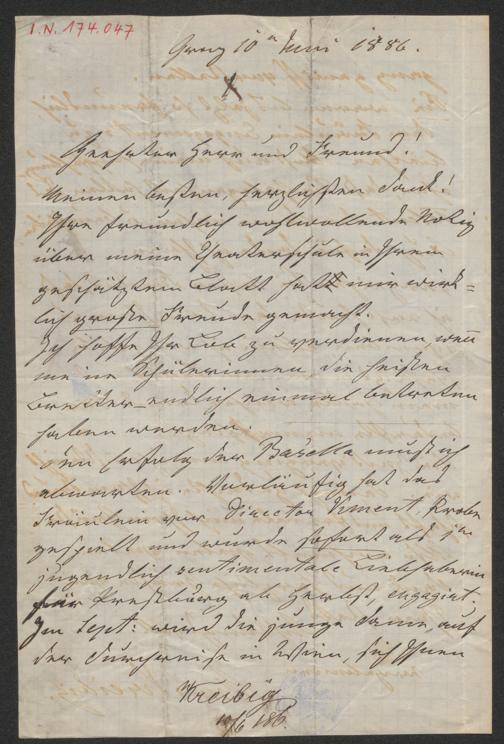 I.N. 174.047
Graz 10n Juni 1886.
Geehrter Herr und Freund!
Meinen besten, herzlichsten Dank!
Ihre freundlich wohlwollende Notiz
über meine Theaterschule in Ihrem
geschätzten Blatt hat mir wirk=
lich große Freude gemacht.
Ich hoffe Ihr Lob zu verdienen, wenn
meine Schülerinnen die heißen
Bretter endlich einmal betreten
haben werden.
Den Erfolg der Basella muß ich
abwarten. Vorläufig hat das
Fräulein vor Director Riment Probe
gespielt und wurde sofort als 1te
jugendlich sentimentale Liebhaberin
für Pressburg ab Herbst, engagirt.
Im Sept: wird die junge Dame, auf
der Durchreise in Wien, sich Ihnen
Kreibig
10/6 886.